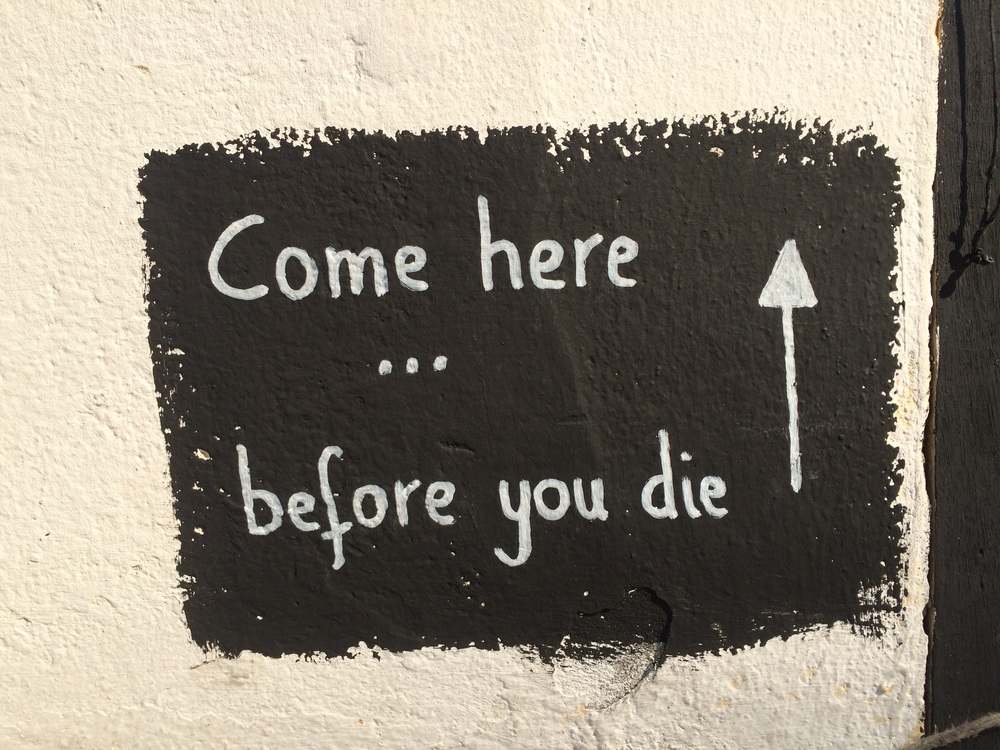 Come here
...
before you die